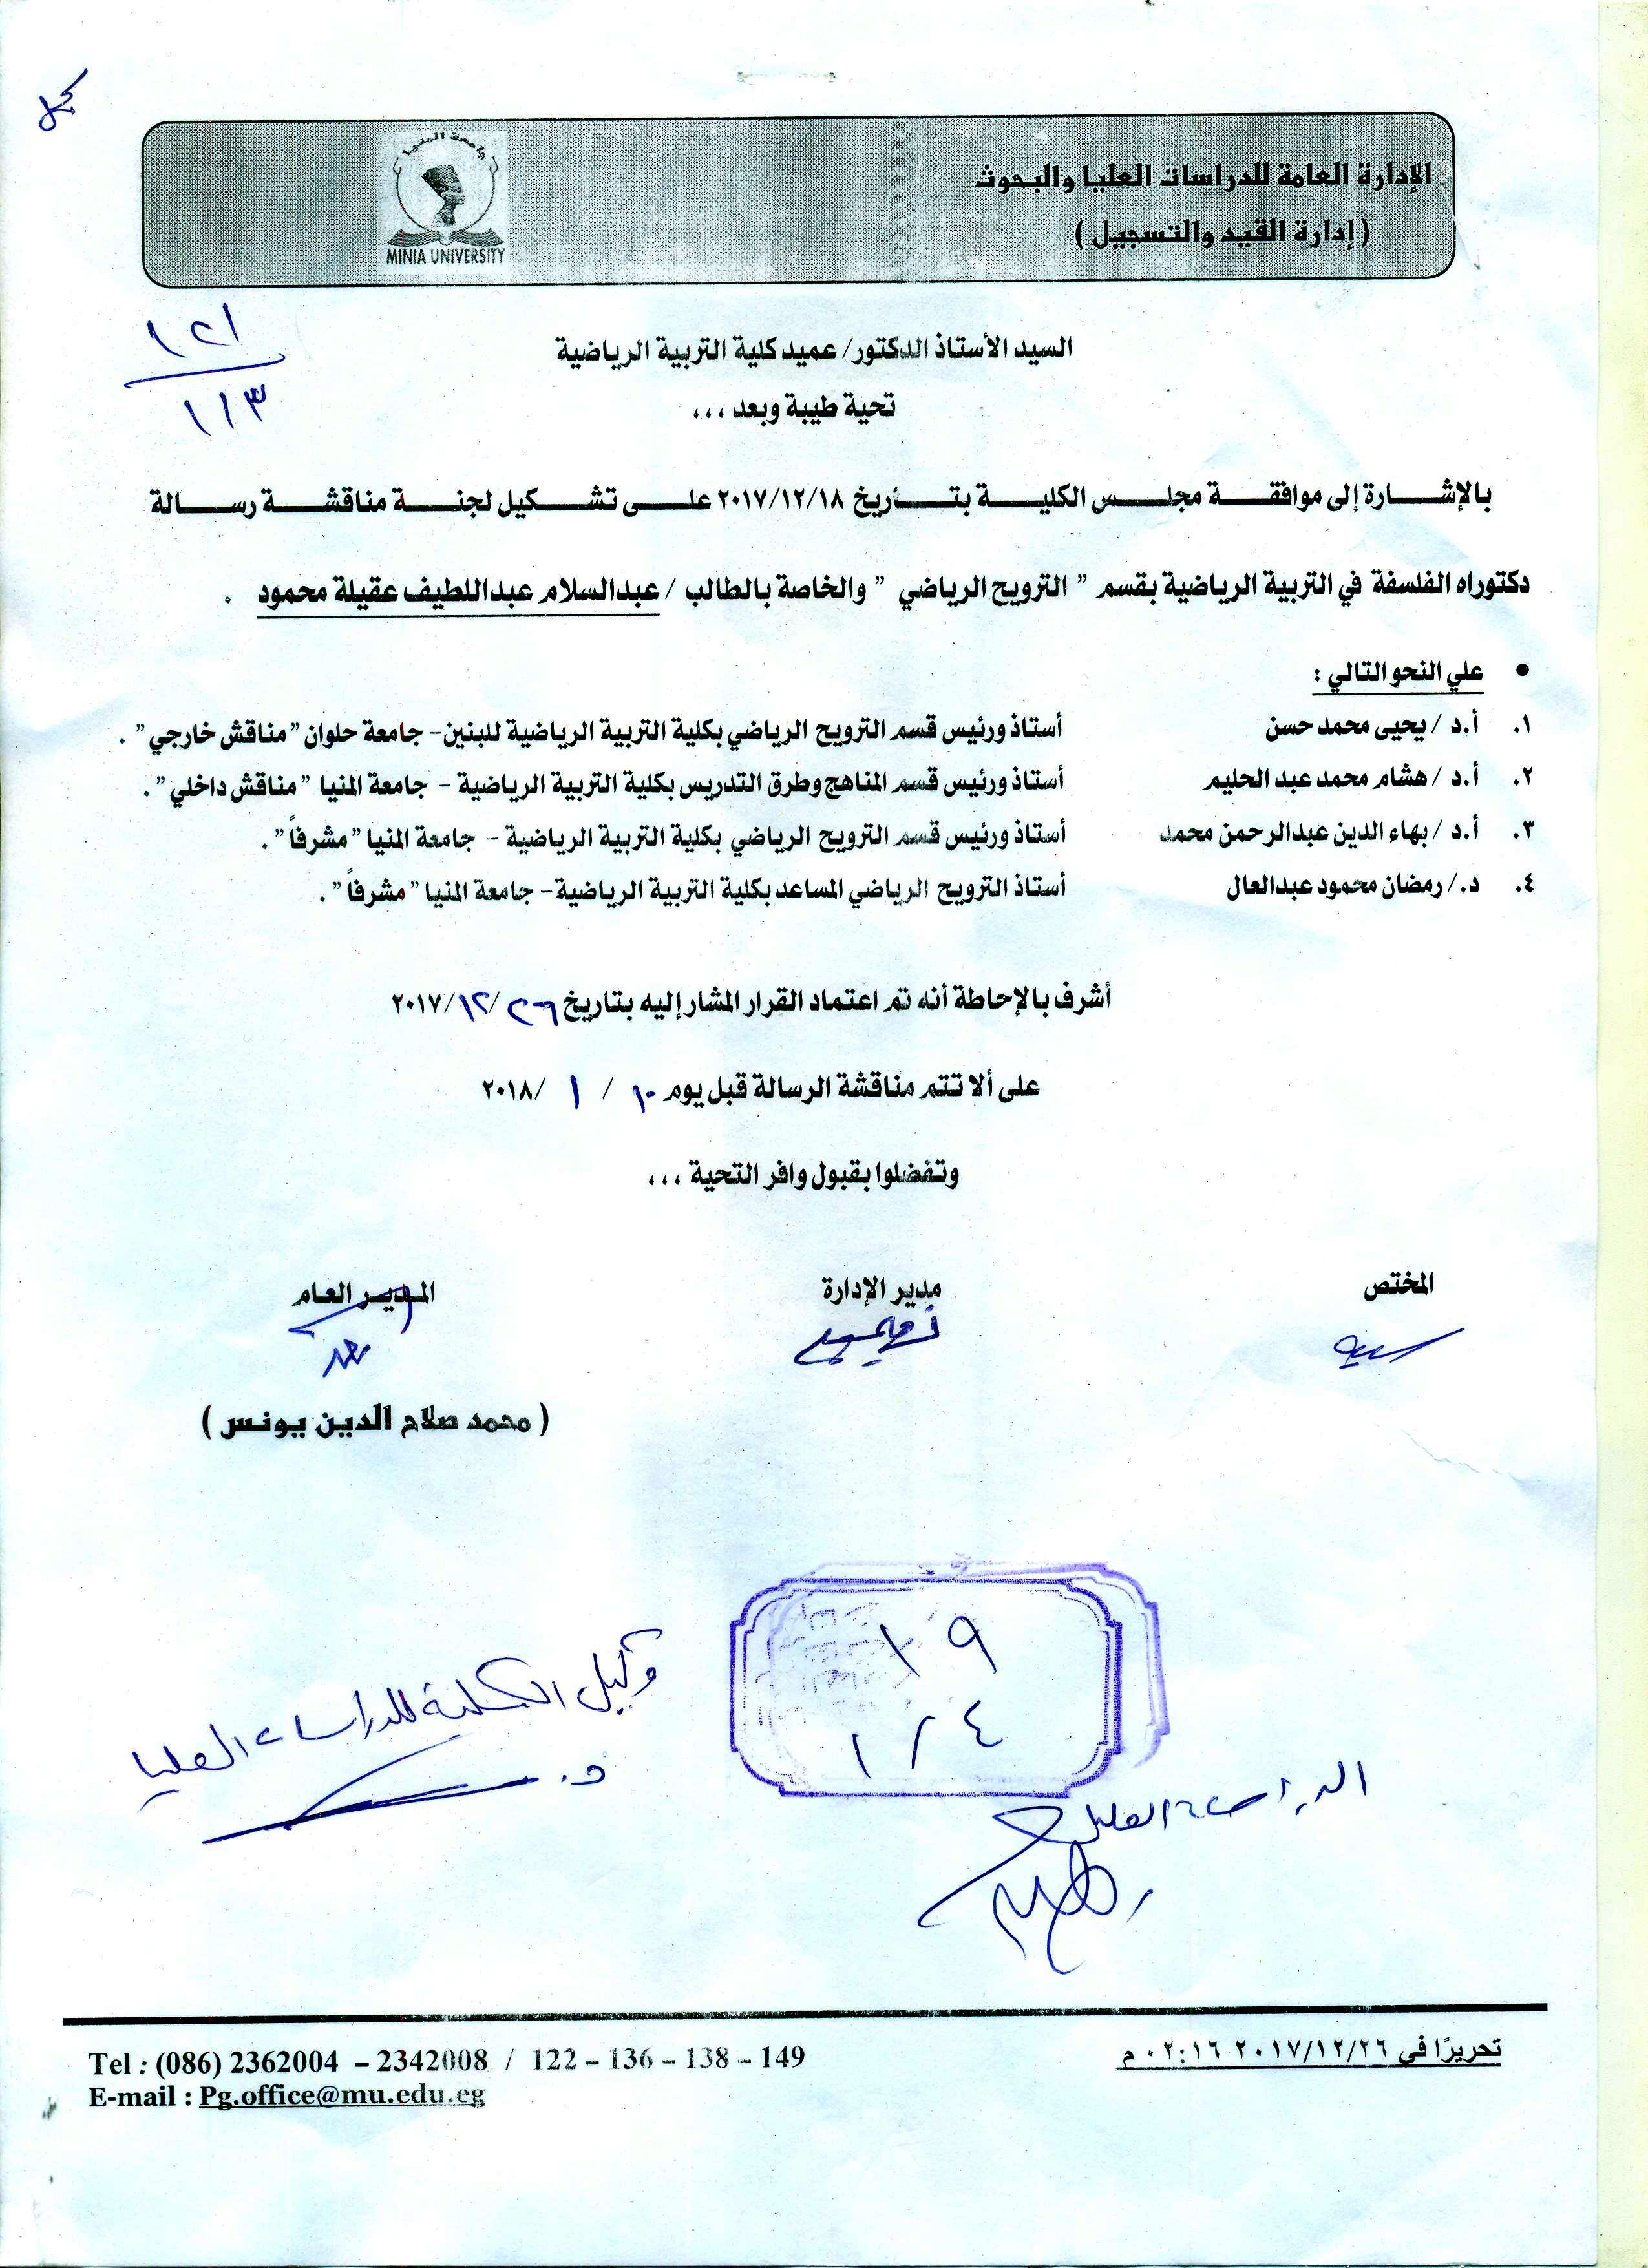 الإدارة العامة للدراسات العليا والبحوث
( إدارة القيد والتسجيل )
جامعة المنيا
MINIA UNIVERSITY
١٢١
١/٣
السيد الأستاذ الدكتور/ عميد كلية التربية الرياضية
تحية طيبة وبعد ،،،
بالإشارة إلى موافقة مجلس الكلية بتاريخ ٢٠١٧/١٢/١٨ على تشكيل لجنة مناقشة رسالة
دكتوراه الفلسفة في التربية الرياضية بقسم " الترويح الرياضي " والخاصة بالطالب / عبدالسلام عبداللطيف عقيلة محمود .
• علي النحو التالي :
١. أ.د / يحيى محمد حسن أستاذ ورئيس قسم الترويح الرياضي بكلية التربية الرياضية للبنين- جامعة حلوان "مناقش خارجي" .
٢. أ.د / هشام محمد عبد الحليم أستاذ ورئيس قسم المناهج وطرق التدريس بكلية التربية الرياضية - جامعة المنيا "مناقش داخلي" .
٣. أ.د / بهاء الدين عبدالرحمن محمد أستاذ ورئيس قسم الترويح الرياضي بكلية التربية الرياضية - جامعة المنيا "مشرفاً" .
٤. د./ رمضان محمود عبدالعال أستاذ الترويح الرياضي المساعد بكلية التربية الرياضية- جامعة المنيا "مشرفاً" .
أشرف بالإحاطة أنه تم اعتماد القرار المشار إليه بتاريخ ٢٦/ ١٢/ ٢٠١٧
على ألا تتم مناقشة الرسالة قبل يوم ١٠ / ١ /٢٠١٨
وتفضلوا بقبول وافر التحية ،،،
المختص مدير الإدارة المدير العام
( محمد صلاح الدين يونس )
١٩
١/٤
وكيل الكلية للدراسات العليا
د.
الدراسات العليا
تحريرًا في ٢٠١٧/١٢/٢٦ ٠٢:١٦ م
Tel : (086) 2362004 – 2342008 / 122 – 136 – 138 – 149
E-mail : Pg.office@mu.edu.eg